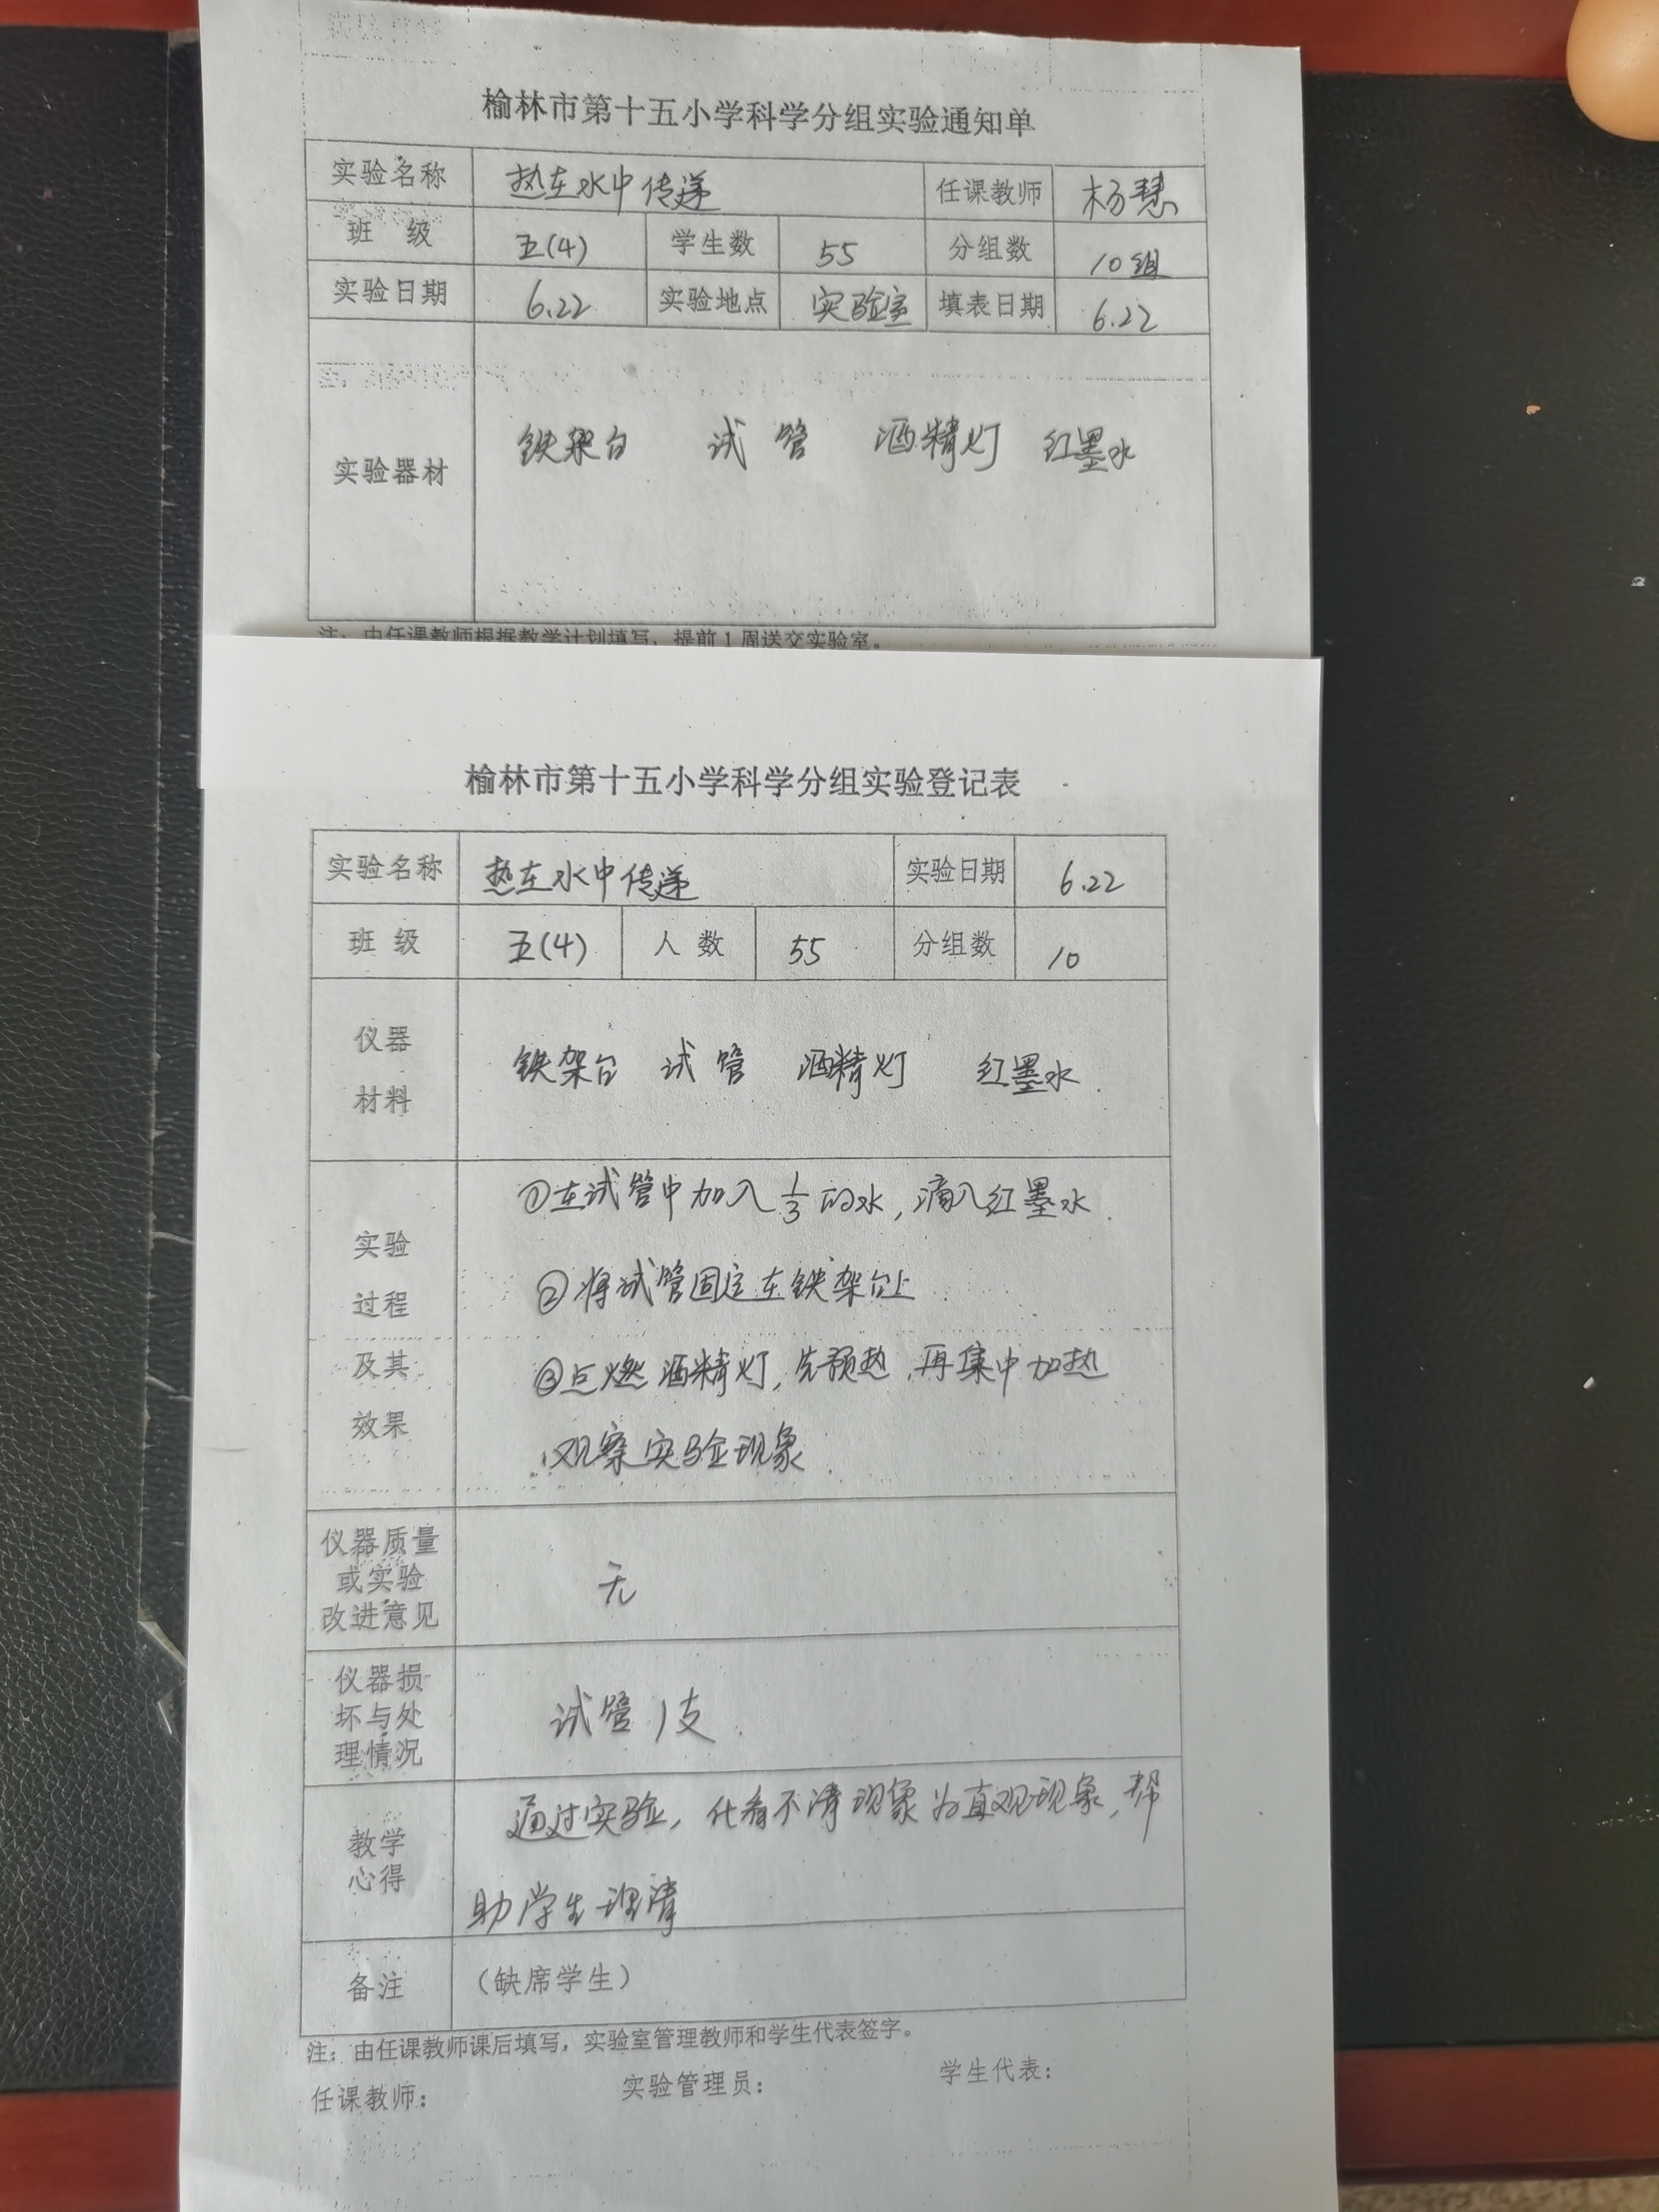 榆林市第十五小学科学分组实验通知单
实验名称 热在水中传递 任课教师 杨慧
班 级 五(4) 学生数 55 分组数 10组
实验日期 6.22 实验地点 实验室 填表日期 6.22
实验器材 铁架台 试管 酒精灯 红墨水
注：由任课教师根据教学计划填写，提前1周送交实验室。
榆林市第十五小学科学分组实验登记表
实验名称 热在水中传递 实验日期 6.22
班 级 五(4) 人 数 55 分组数 10
仪器
材料
铁架台 试管 酒精灯 红墨水.
实验
过程
及其
效果
①在试管中加入1/3的水，滴入红墨水.
②将试管固定在铁架台上
③点燃酒精灯，先预热，再集中加热
观察实验现象
仪器质量
或实验
改进意见
无
仪器损
坏与处
理情况
试管1支.
教学
心得
通过实验，化看不清现象为直观现象，帮
助学生理清
备注 （缺席学生）
注：由任课教师课后填写，实验室管理教师和学生代表签字。
任课教师： 实验管理员： 学生代表：